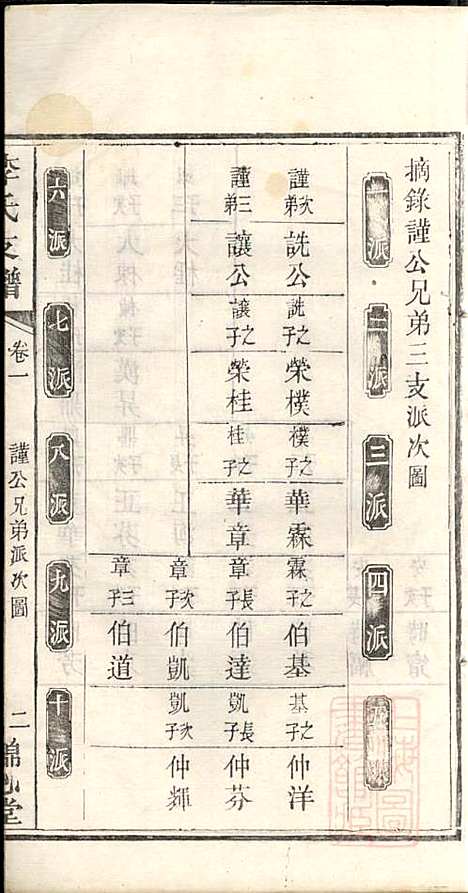 摘錄謹公兄弟三支派次圖
一派 二派 三派 四派 五派
謹次弟 詵公 詵之子 榮樸 樸之子 華霖 霖之子 伯基 基之子 仲洋
謹三弟 讓公 讓之子 榮桂 桂之子 華章 章長子 伯達 凱長子 仲芬
章次子 伯凱 凱次子 仲輝
章三子 伯道
六派 七派 八派 九派 十派
氏支譜 卷一 謹公兄弟派次圖 二 堂